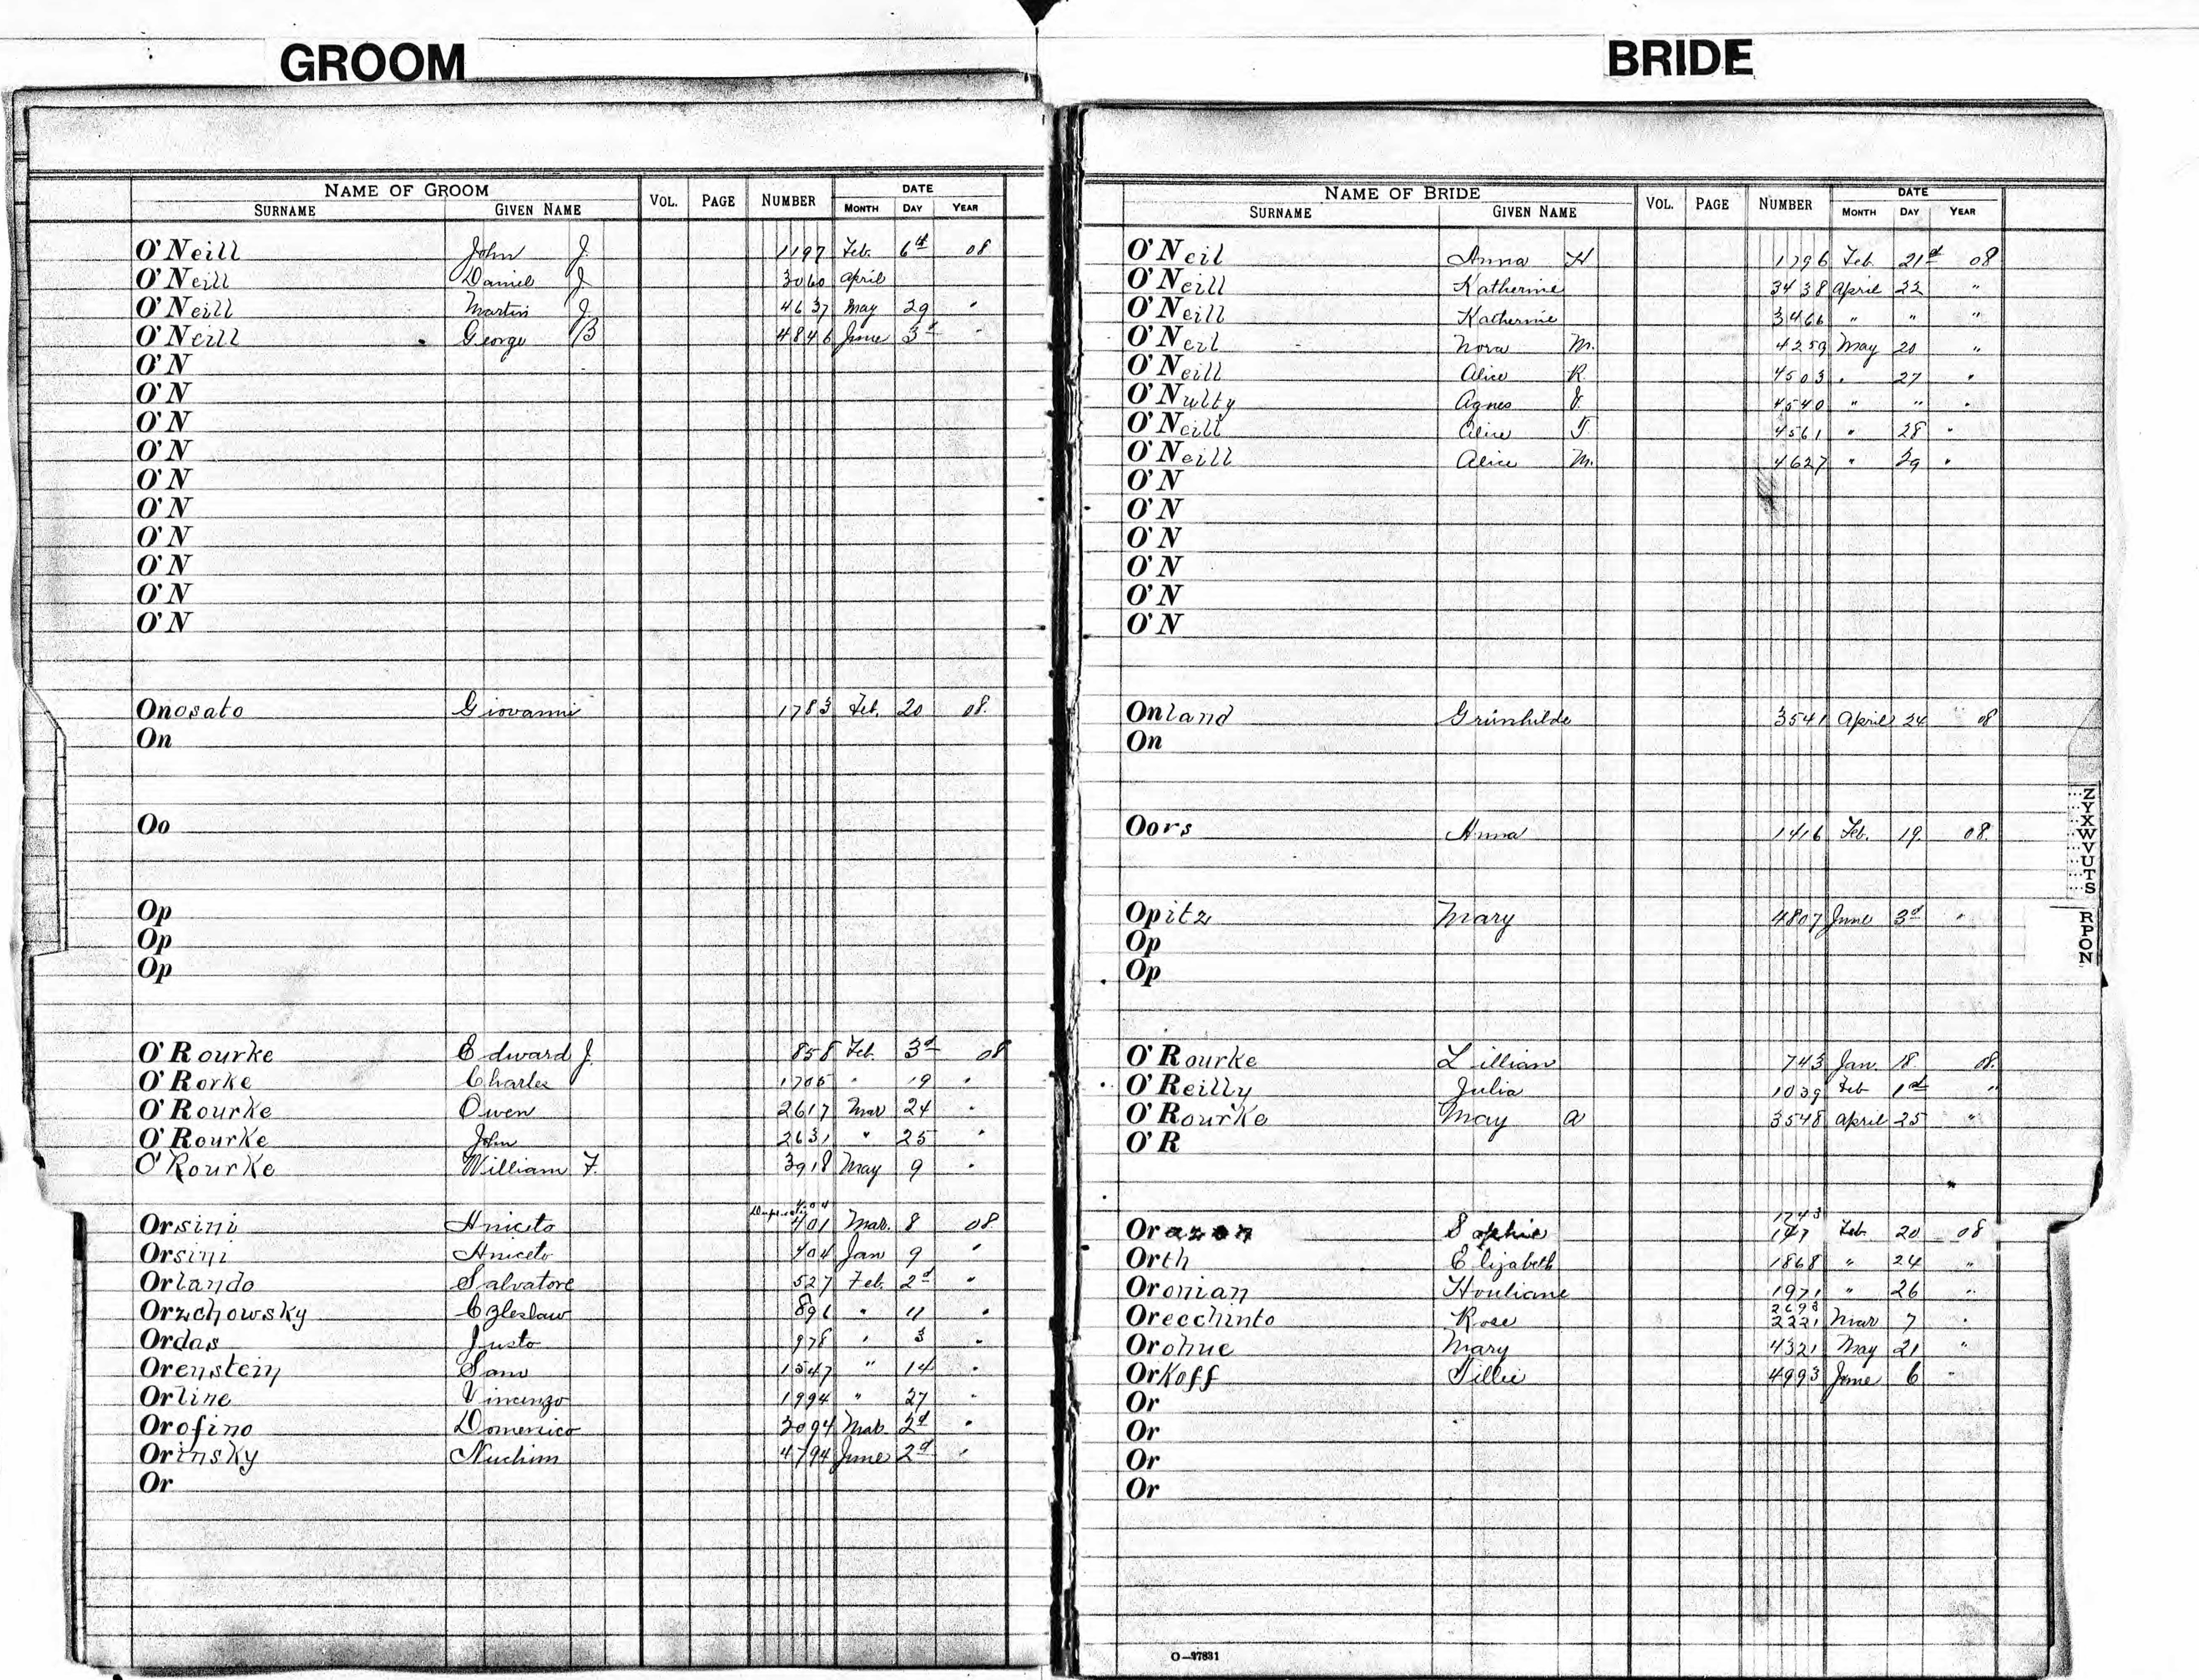 GROOM
NAME OF GROOM VOL. PAGE NUMBER DATE
SURNAME GIVEN NAME MONTH DAY YEAR
O'Neill John J. 1197 Feb. 6th 08
O'Neill Daniel J 3060 April
O'Neill Martin J. 4637 May 29 "
O'Neill George B 4846 June 3d "
O'N
O'N
O'N
O'N
O'N
O'N
O'N
O'N
O'N
O'N
Onosato Giovanni 1783 Feb. 20 08.
On
Oo
Op
Op
Op
O'Rourke Edward J. 858 Feb. 3d 08
O'Rorke Charles 1705 " 19 "
O'Rourke Owen 2617 Mar 24 "
O'Rourke John 2631 " 25 "
O'Rourke William F. 3918 May 9 "
Orsini Aniceto 401 Mar. 8 08
Orsini Aniceto 404 Jan 9 "
Orlando Salvatore 527 Feb. 2d "
Orzchowsky Czleslaw 896 " 11 "
Ordas Justo 978 " 3 "
Orenstein Sam 1547 " 14 "
Orline Vincenzo 1994 " 27 "
Orofino Domenico 2094 Mar. 2d "
Orinsky Nuchim 4794 June 2d "
Or
BRIDE
NAME OF BRIDE VOL. PAGE NUMBER DATE
SURNAME GIVEN NAME MONTH DAY YEAR
O'Neil Anna H 1796 Feb. 21st 08
O'Neill Katherine 3438 April 22 "
O'Neill Katherine 3466 " " "
O'Neil Nora M. 4259 May 20 "
O'Neill Alice R. 4503 " 27 "
O'Nulty Agnes J. 4540 " " "
O'Neill Alice T. 4561 " 28 "
O'Neill Alice M. 4627 " 29 "
O'N
O'N
O'N
O'N
O'N
O'N
Onland Grunhilde 3541 April 24 08
On
Oors Anna 1416 Feb. 19. 08.
Opitz Mary 4807 June 3d "
Op
Op
O'Rourke Lillian 743 Jan. 18. 08.
O'Reilly Julia 1039 Feb 1st "
O'Rourke May A 3548 April 25 "
O'R
1743
Or Sophie 147 Feb. 20 08
Orth Elizabeth 1868 " 24 "
Oronian Houliane 1971 " 26 "
2693
Orecchinto Rose 2221 Mar 7 "
Orohue Mary 4321 May 21 "
Orkoff Tillie 4993 June 6 "
Or
Or
Or
Or
O—37831
Z
Y
X
W
V
U
T
S
R
P
O
N